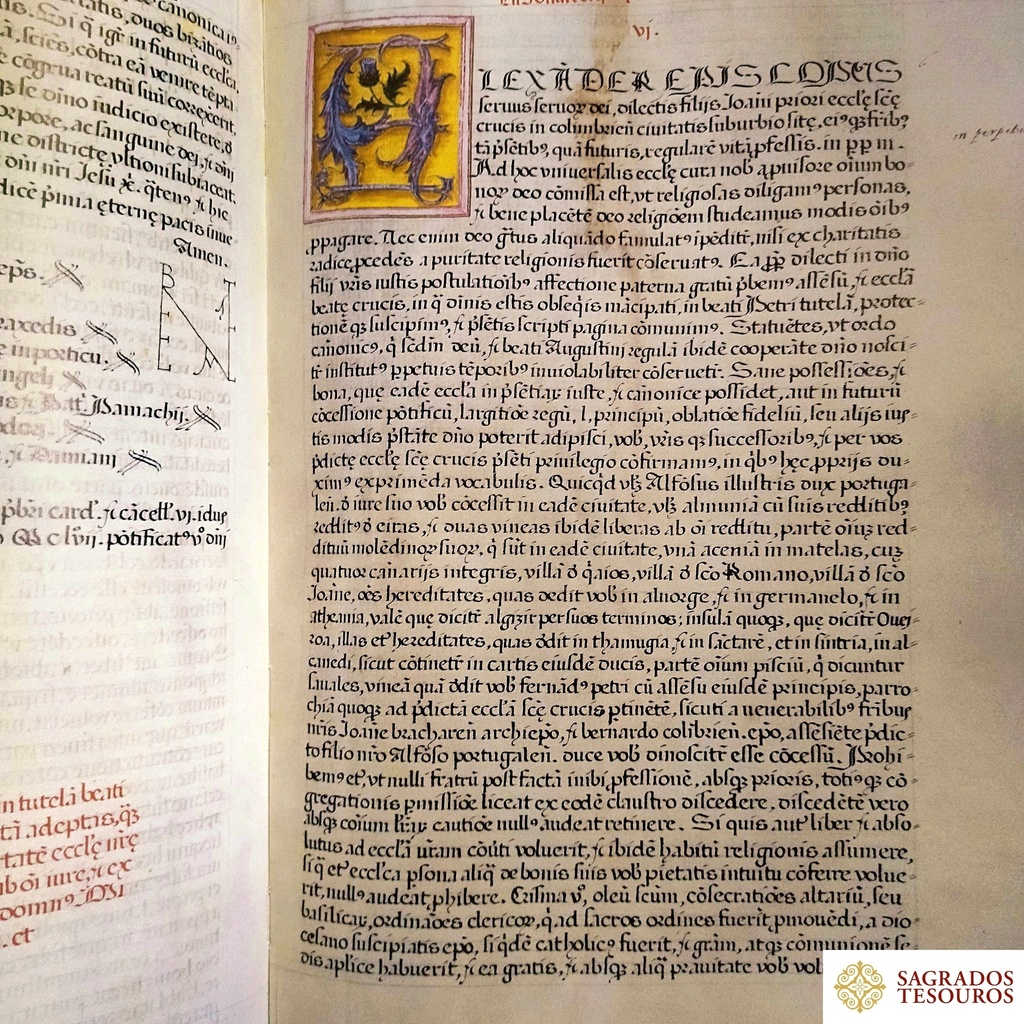 canonica
tatis, duos bizãtios
Si q̃ igr̃ in futurũ eccl'ia
sciẽs, cõtra eã venire tẽpta
cõgrua reatũ suũ correxerit,
se diuino iudicio existere, ð
corpore, ac sanguine dei, ſi dñi
districtę vltioni subiaceat.
dñi nri Jesu x̃. q̃ten⁹ ſi hic
dice p̃mia ęternę pacis inue
Amen.
eps.
axedis
in porticu.
angeli
Pamachij.
Damiani
pbri card. ſi cãcell'. vj. idus
clvij. põtificat⁹ v̊ dñi
in tutelã beati
tã adeptas, q̃ʒ
tatẽ eccl'ę nr̃ę
ab oĩ iure, ſi ex
domin⁹
et
vj.
ALEXÃDER EPISCOPUS
seruus seruoꝝ dei, dilectis filijs Ioaĩ priori eccl'ę scę
crucis in colimbrieñ ciuitatis suburbio sitę, ei⁹qʒ fr̃ib⁹
tã p̃sẽtib⁹, quã futuris, regularẽ vitã ꝓfessis. in ꝑꝑ m̃.
Ad hoc vniuersalis eccl'ę cura nob̃ a ꝓuisore oĩum bo-
noꝝ deo cõmissa est, vt religiosas diligam⁹ personas,
ſi bene placẽtẽ deo religiõem studeamus modis oĩb⁹
ꝓpagare. Nec enim deo gr̃tus aliquãdo famulat⁹ ĩpẽditr̃, nisi ex charitatis
radice ꝓcedẽs a puritate religionis fuerit cõseruat⁹. Ea ꝓꝑ dilecti in dño
filij vr̃is iustis postulatiõib⁹ affectione paterna gratũ p̃bem⁹ assẽsũ, ſi eccl'ã
beate crucis, in q̃ diuinis estis obseqijs mãcipati, in beati Petri tutelã, protec-
tionẽ qʒ suscipim⁹, ſi p̃sẽtis scripti pagina cõmunim⁹. Statuẽtes, vt ordo
canonic⁹, q̃ sedm̃ deũ, ſi beati Augustini regulã ibidẽ cooperãte dño nosci-
tr̃ institut⁹ ꝑpetuis tẽporib⁹ inuiolabiliter cõseruetr̃. Sane possessiões, ſi
bona, que eadẽ eccl'ia in p̃sẽtiaꝝ iuste, ſi canonice possidet, aut in futurũ
cõcessione põtificũ, largitiõe regũ, l, principũ, oblatiõe fideliũ, seu alijs ius-
tis modis p̃stãte dño poterit adipisci, vob̃, vr̃is qʒ successorib⁹, ſi per vos
p̃dictę eccl'ę scę crucis p̃sẽti priuilegio cõfirmam⁹, in q̃b⁹ hęc ꝓprijs du-
xim⁹ exprimẽda vocabulis. Quicq̃d vʒ Alfõsus illustris dux portuga-
leñ. ð iure suo vob̃ cõcessit in eadẽ ciuitate, vʒ almuniã cũ suis reditib⁹
redit⁹ ð eiras, ſi duas vineas ibidẽ liberas ab oĩ redditu, partẽ oĩũ red-
dituũ molẽdinoꝝ suoꝝ, q̃ sũt in eadẽ ciuitate, vnã aceniã in matelas, cuʒ
quatuor canarijs integris, villã ð q̃aios, villã ð sc̃o Romano, villã ð sc̃o
Ioãne, oẽs hereditates, quas dedit vob̃ in alnorge, ſi in germanelo, ſi in
athemia, valẽ que dicitr̃ algizir per suos terminos; insulã quoqʒ, que dicitr̃ Ouei-
roa, illas et hereditates, quas ðdit in thamugia, ſi in sãctarẽ, et in sintria, in al-
canedi, sicut cõtinetr̃ in cartis eiusdẽ ducis, partẽ oĩum pisciũ, q̃ dicuntur
sauales, vineã quã ðdit vob̃ fernãd⁹ petri cũ assẽsu eiusdẽ principis, parro-
chiã quoqʒ ad p̃dictã eccl'ã scę crucis ptinẽtẽ, sicuti a uenerabilib⁹ fr̃ibus
nr̃is Ioãne bracharen̄ archiep̃o, ſi bernardo colibrien̄. ep̃o, assẽsiẽte p̃dic-
to filio nr̃o Alfõso portugaleñ. duce vob̃ dinoscitr̃ esse cõcessũ. Prohi-
bem⁹ et, vt nulli fratrũ post factã inibi ꝓfessionẽ, absqʒ prioris, toti⁹qʒ cõ-
gregationis ꝑmissiõe liceat ex eodẽ claustro discedere, discedẽtẽ vero
absqʒ cõĩum lr̃aꝝ cautiõe null⁹ audeat retinere. Si quis aut liber ſi abso-
lutus ad eccl'ã urãm cõuti voluerit, ſi ibidẽ habitũ religionis assumere,
siq̃ et ecclesca psona aliq̃ de bonis suis vob̃ pietatis intuitu cõferre volue-
rit, null⁹ audeat phibere. Crisma v̊, oleũ scũm, cõsecratiões altariũ, seu
basilicaꝝ, ordinãoes clericoꝝ, q̃ ad sacros ordines fuerĩt ꝓmouẽdi, a dio-
cesano suscipiatis ep̃o, si q̃dẽ catholic⁹ fuerit, ſi grãm, atqʒ cõmunionẽ se-
dis aplice habuerit, ſi ea gratis, ſi absqʒ aliq̃ prauitate vob̃
in perpetu
SAGRADOS
TESOUROS